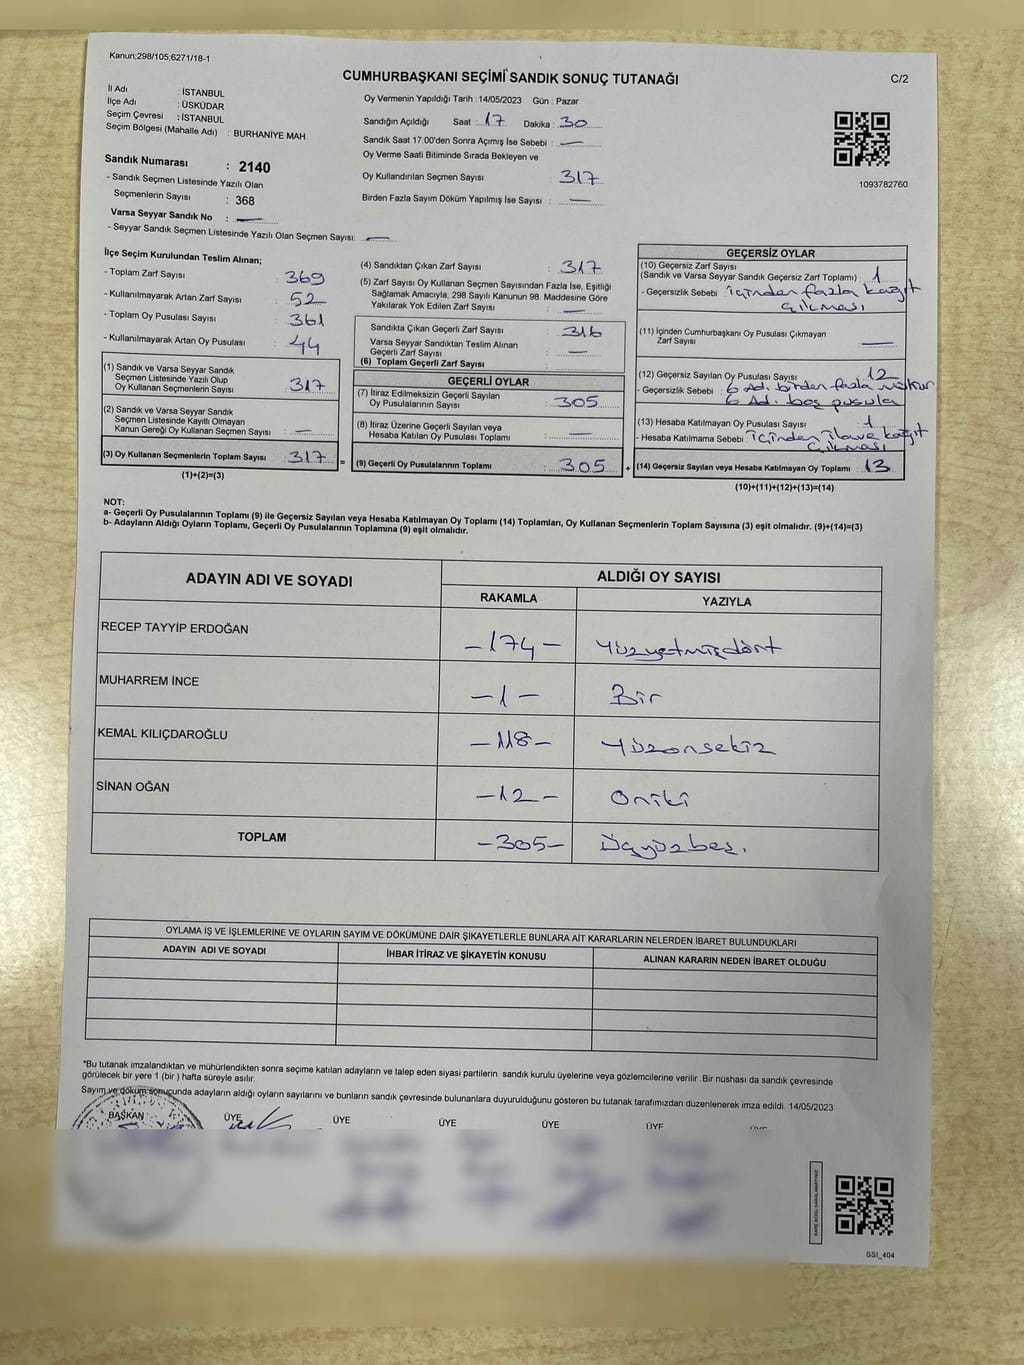 Kanun;298/105;6271/18-1
CUMHURBAŞKANI SEÇİMİ SANDIK SONUÇ TUTANAĞI
C/2
İl Adı : İSTANBUL
İlçe Adı : ÜSKÜDAR
Seçim Çevresi : İSTANBUL
Seçim Bölgesi (Mahalle Adı) : BURHANİYE MAH.
Sandık Numarası : 2140
- Sandık Seçmen Listesinde Yazılı Olan
Seçmenlerin Sayısı : 368
Varsa Seyyar Sandık No : —
- Seyyar Sandık Seçmen Listesinde Yazılı Olan Seçmen Sayısı: —
Oy Vermenin Yapıldığı Tarih : 14/05/2023 Gün : Pazar
Sandığın Açıldığı Saat : 17 Dakika : 30
Sandık Saat 17.00'den Sonra Açımış İse Sebebi : —
Oy Verme Saati Bitiminde Sırada Bekleyen ve
Oy Kullandırılan Seçmen Sayısı : 317
Birden Fazla Sayım Döküm Yapılmış İse Sayısı : —
1093782760
İlçe Seçim Kurulundan Teslim Alınan;
- Toplam Zarf Sayısı : 369
- Kullanılmayarak Artan Zarf Sayısı : 52
- Toplam Oy Pusulası Sayısı : 361
- Kullanılmayarak Artan Oy Pusulası : 44
(1) Sandık ve Varsa Seyyar Sandık
Seçmen Listesinde Yazılı Olup
Oy Kullanan Seçmenlerin Sayısı : 317
(2) Sandık ve Varsa Seyyar Sandık
Seçmen Listesinde Kayıtlı Olmayan
Kanun Gereği Oy Kullanan Seçmen Sayısı : —
(3) Oy Kullanan Seçmenlerin Toplam Sayısı : 317 =
(1)+(2)=(3)
(4) Sandıktan Çıkan Zarf Sayısı : 317
(5) Zarf Sayısı Oy Kullanan Seçmen Sayısından Fazla İse, Eşitliği
Sağlamak Amacıyla; 298 Sayılı Kanunun 98. Maddesine Göre
Yakılarak Yok Edilen Zarf Sayısı : —
Sandıkta Çıkan Geçerli Zarf Sayısı : 316
Varsa Seyyar Sandıktan Teslim Alınan
Geçerli Zarf Sayısı : —
(6) Toplam Geçerli Zarf Sayısı
GEÇERLİ OYLAR
(7) İtiraz Edilmeksizin Geçerli Sayılan
Oy Pusulalarının Sayısı : 305
(8) İtiraz Üzerine Geçerli Sayılan veya
Hesaba Katılan Oy Pusulası Toplamı : —
(9) Geçerli Oy Pusulalarının Toplamı : 305 +
GEÇERSİZ OYLAR
(10) Geçersiz Zarf Sayısı
(Sandık ve Varsa Seyyar Sandık Geçersiz Zarf Toplamı) : 1
- Geçersizlik Sebebi : içinden fazla kağıt
çıkması
(11) İçinden Cumhurbaşkanı Oy Pusulası Çıkmayan
Zarf Sayısı : —
(12) Geçersiz Sayılan Oy Pusulası Sayısı : 12
- Geçersizlik Sebebi : 6 Ad. birden fazla mühür
6 Ad. boş pusula
(13) Hesaba Katılmayan Oy Pusulası Sayısı : 1
- Hesaba Katılmama Sebebi : içinden ilave kağıt
çıkması
(14) Geçersiz Sayılan veya Hesaba Katılmayan Oy Toplamı : 13
(10)+(11)+(12)+(13)=(14)
NOT:
a- Geçerli Oy Pusulalarının Toplamı (9) ile Geçersiz Sayılan veya Hesaba Katılmayan Oy Toplamı (14) Toplamları, Oy Kullanan Seçmenlerin Toplam Sayısına (3) eşit olmalıdır. (9)+(14)=(3)
b- Adayların Aldığı Oyların Toplamı, Geçerli Oy Pusulalarının Toplamına (9) eşit olmalıdır.
ADAYIN ADI VE SOYADI
ALDIĞI OY SAYISI
RAKAMLA YAZIYLA
RECEP TAYYİP ERDOĞAN -174- Yüzyetmişdört
MUHARREM İNCE -1- Bir
KEMAL KILIÇDAROĞLU -118- Yüzonsekiz
SİNAN OĞAN -12- Oniki
TOPLAM -305- Üçyüzbeş.
OYLAMA İŞ VE İŞLEMLERİNE VE OYLARIN SAYIM VE DÖKÜMÜNE DAİR ŞİKAYETLERLE BUNLARA AİT KARARLARIN NELERDEN İBARET BULUNDUKLARI
ADAYIN ADI VE SOYADI İHBAR İTİRAZ VE ŞİKAYETİN KONUSU ALINAN KARARIN NEDEN İBARET OLDUĞU
*Bu tutanak imzalandıktan ve mühürlendikten sonra seçime katılan adayların ve talep eden siyasi partilerin sandık kurulu üyelerine veya gözlemcilerine verilir .Bir nüshası da sandık çevresinde
görülecek bir yere 1 (bir ) hafta süreyle asılır.
Sayım ve döküm sonucunda adayların aldığı oyların sayılarını ve bunların sandık çevresinde bulunanlara duyurulduğunu gösteren bu tutanak tarafımızdan düzenlenerek imza edildi. 14/05/2023
BAŞKAN ÜYE ÜYE ÜYE ÜYE ÜYE
SSI_404